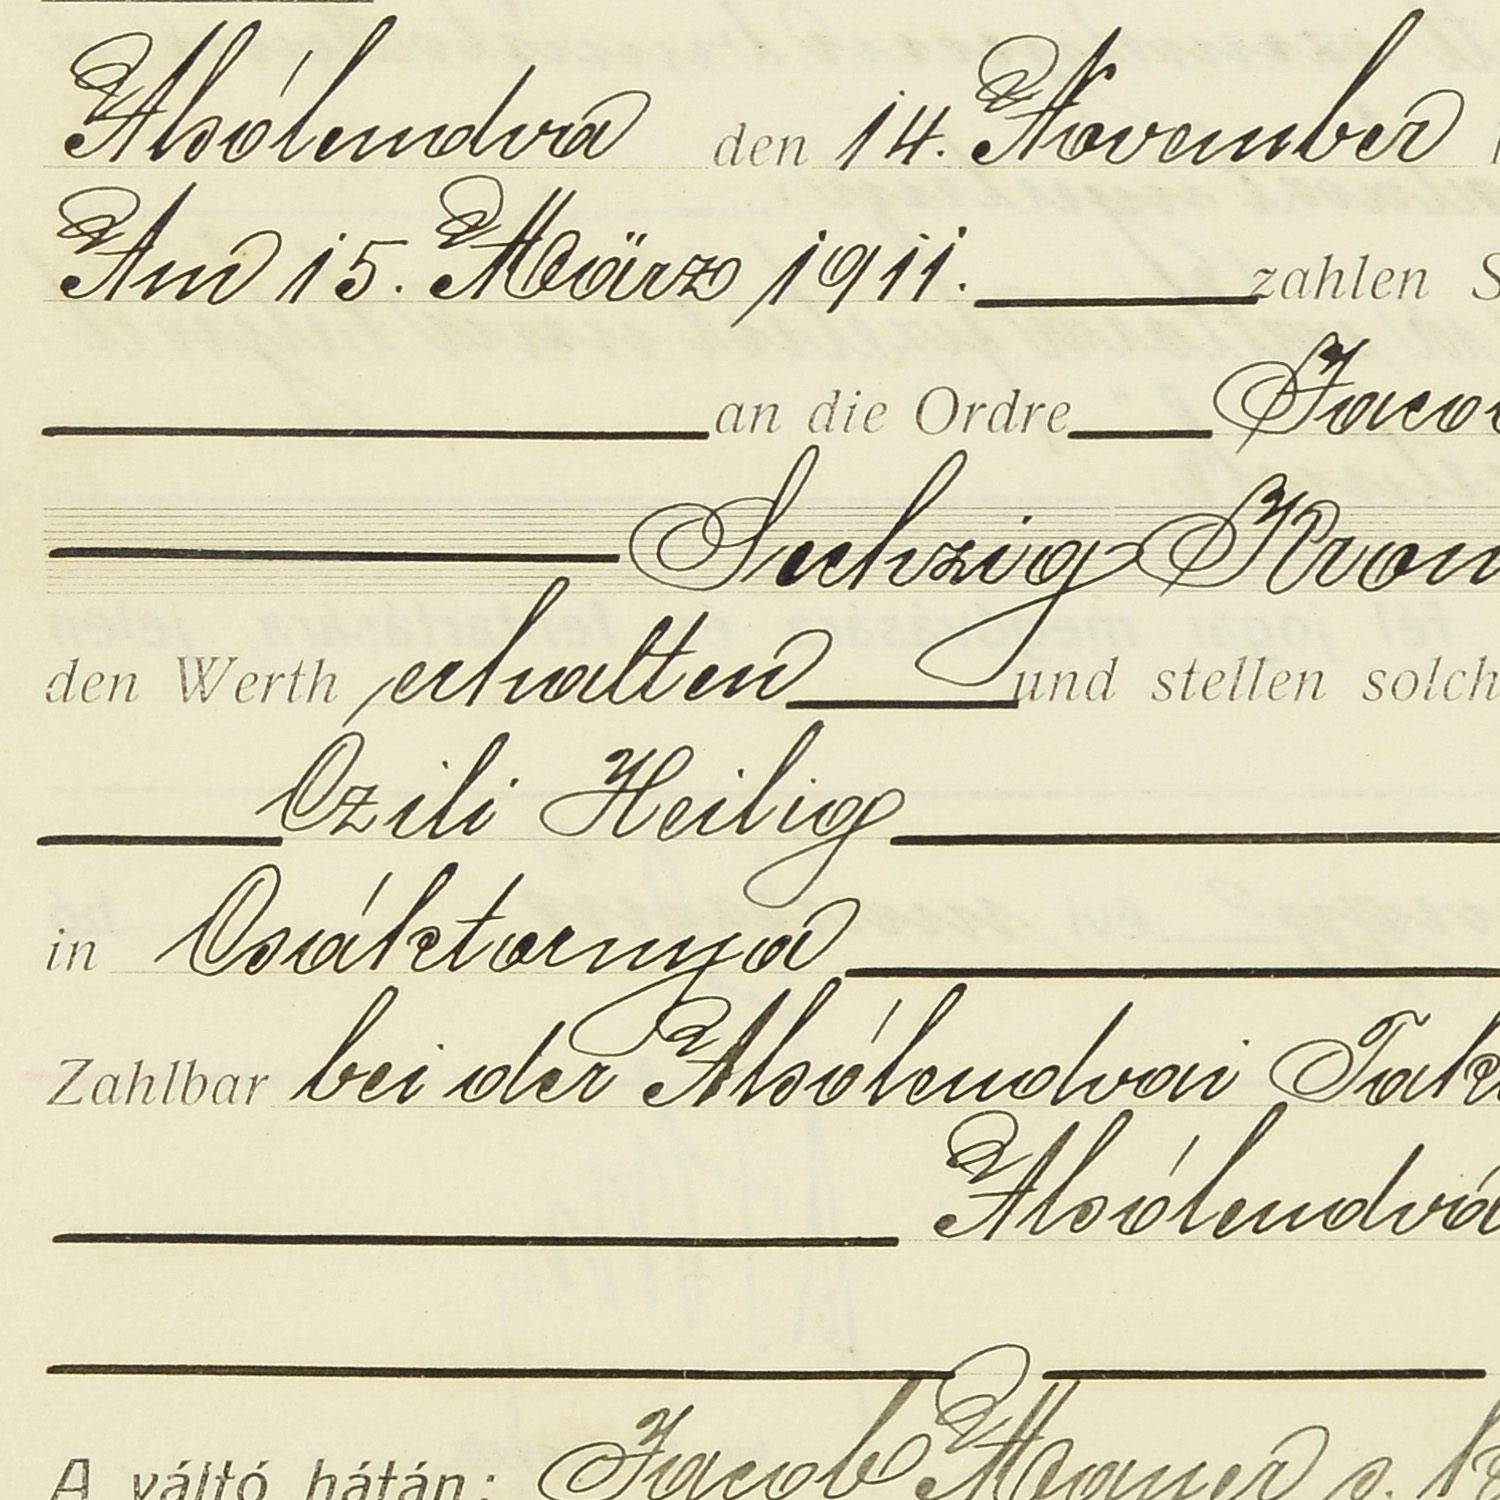 Alsólendva den 14. November
Am 15. März 1911. zahlen S
an die Ordre Jaco
Sechzig Kron
den Werth erhalten und stellen solch
Czili Heilig
in Csáktornya
Zahlbar bei der Alsólendvai Tak
Alsólendva
A váltó hátán: Jacob Mayer s.